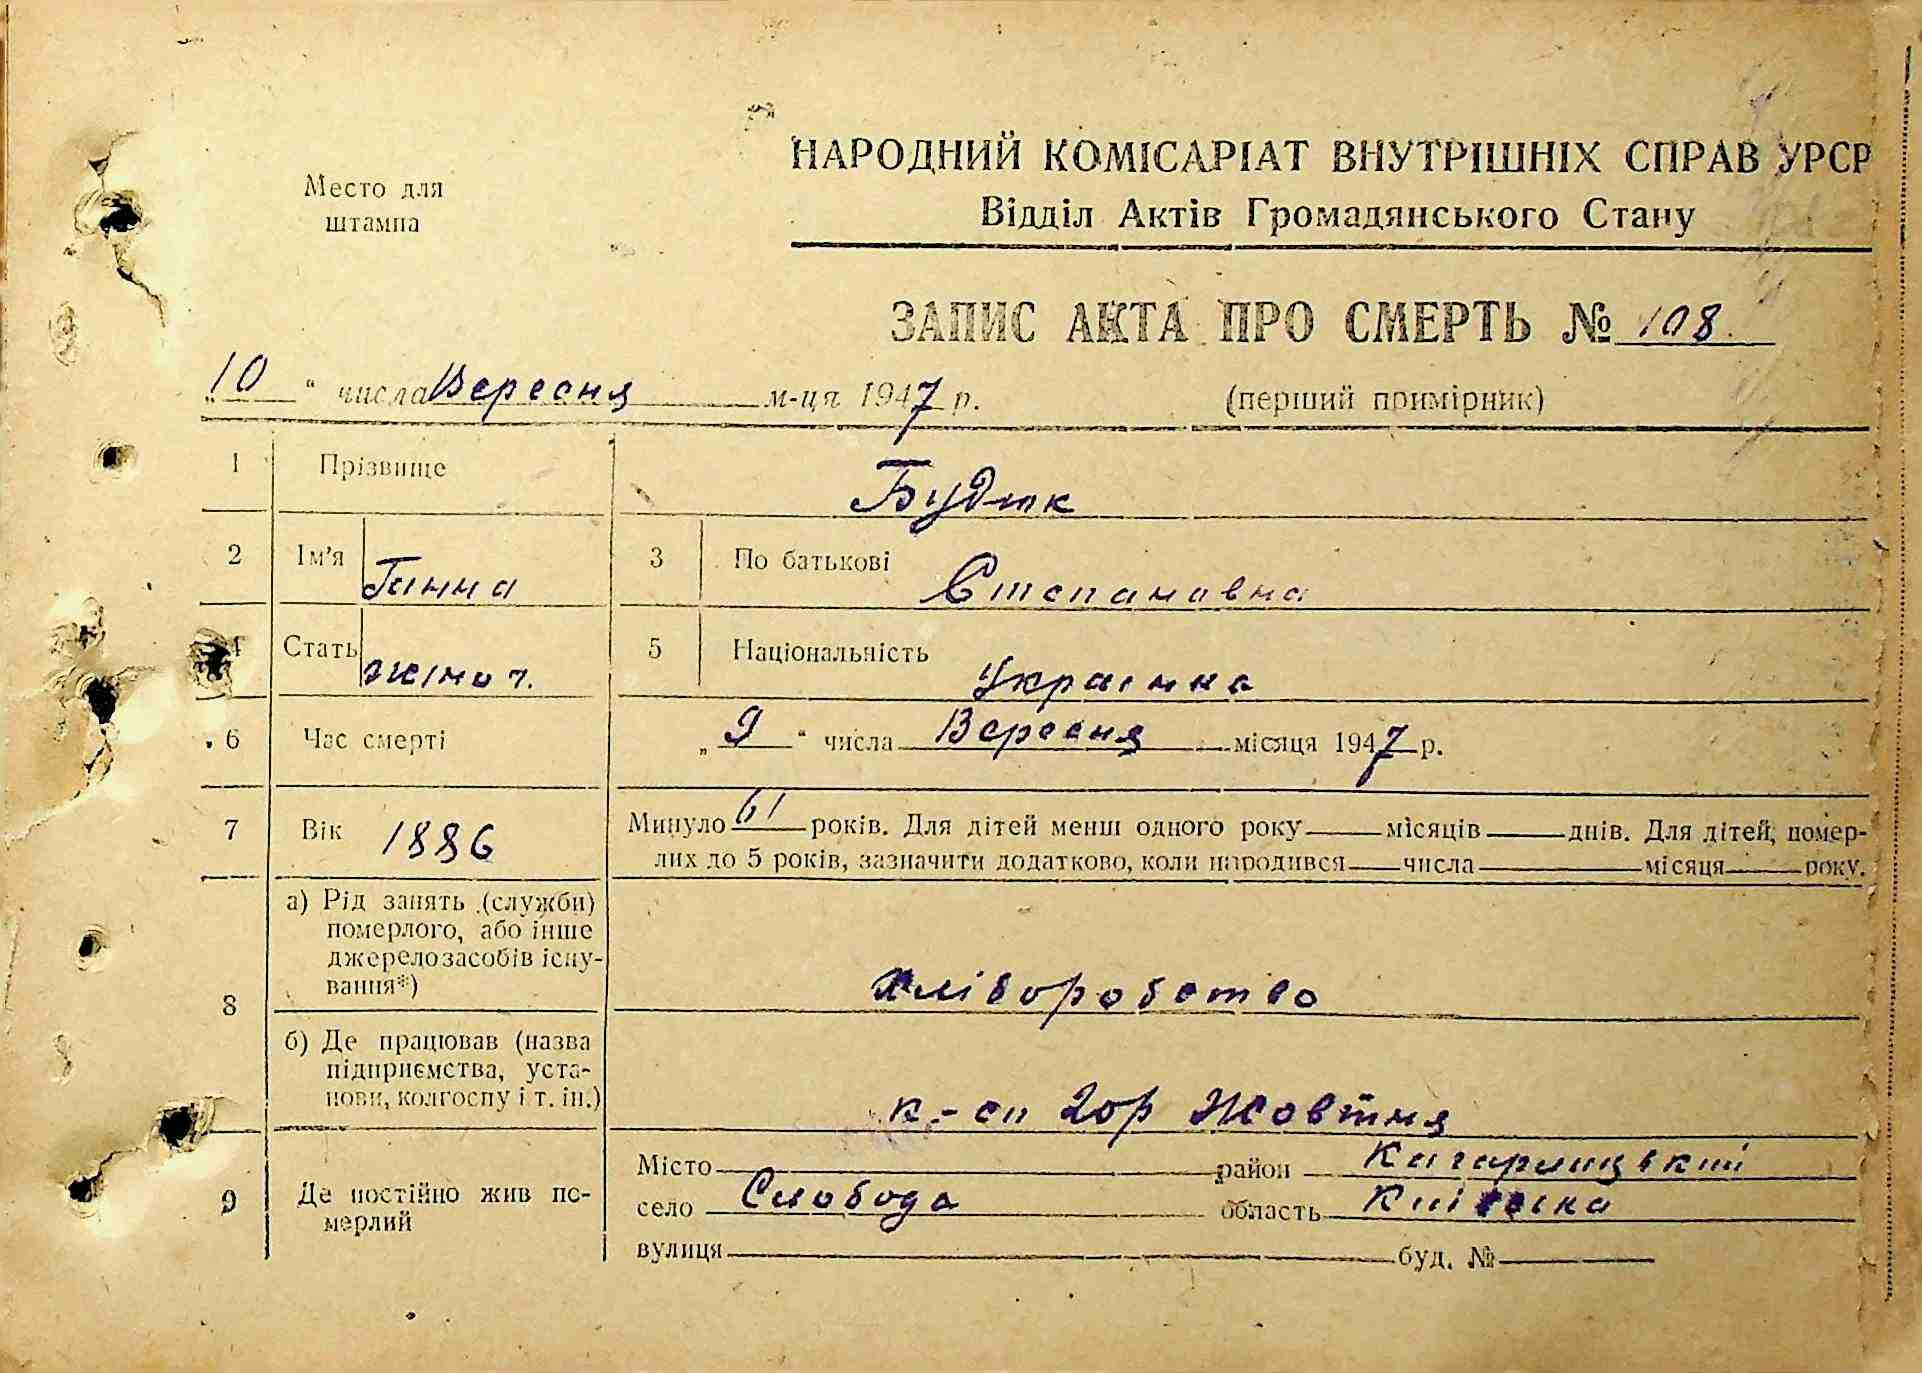 Место для
штампа
НАРОДНИЙ КОМІСАРІАТ ВНУТРІШНІХ СПРАВ УРСР
Відділ Актів Громадянського Стану
ЗАПИС АКТА ПРО СМЕРТЬ № 108.
„10“ числа Вересня м-ця 1947 р. (перший примірник)
1 Прізвище Будюк
2 Ім'я Ганна 3 По батькові Степановна
4 Стать жіноч. 5 Національність Украінка
6 Час смерті „9“ числа Вересня місяця 1947 р.
7 Вік 1886 Минуло 61 років. Для дітей менш одного року — місяців — днів. Для дітей, помер-
лих до 5 років, зазначити додатково, коли народився — числа — місяця — року.
8 а) Рід занять (служби)
померлого, або інше
джерело засобів існу-
вання*) хліборобство
б) Де працював (назва
підприємства, уста-
нови, колгоспу і т. ін.) к-сп 20 р Жовтня
9 Де постійно жив по-
мерлий
Місто район Кагарлицький
село Слобода область Київська
вулиця буд. №